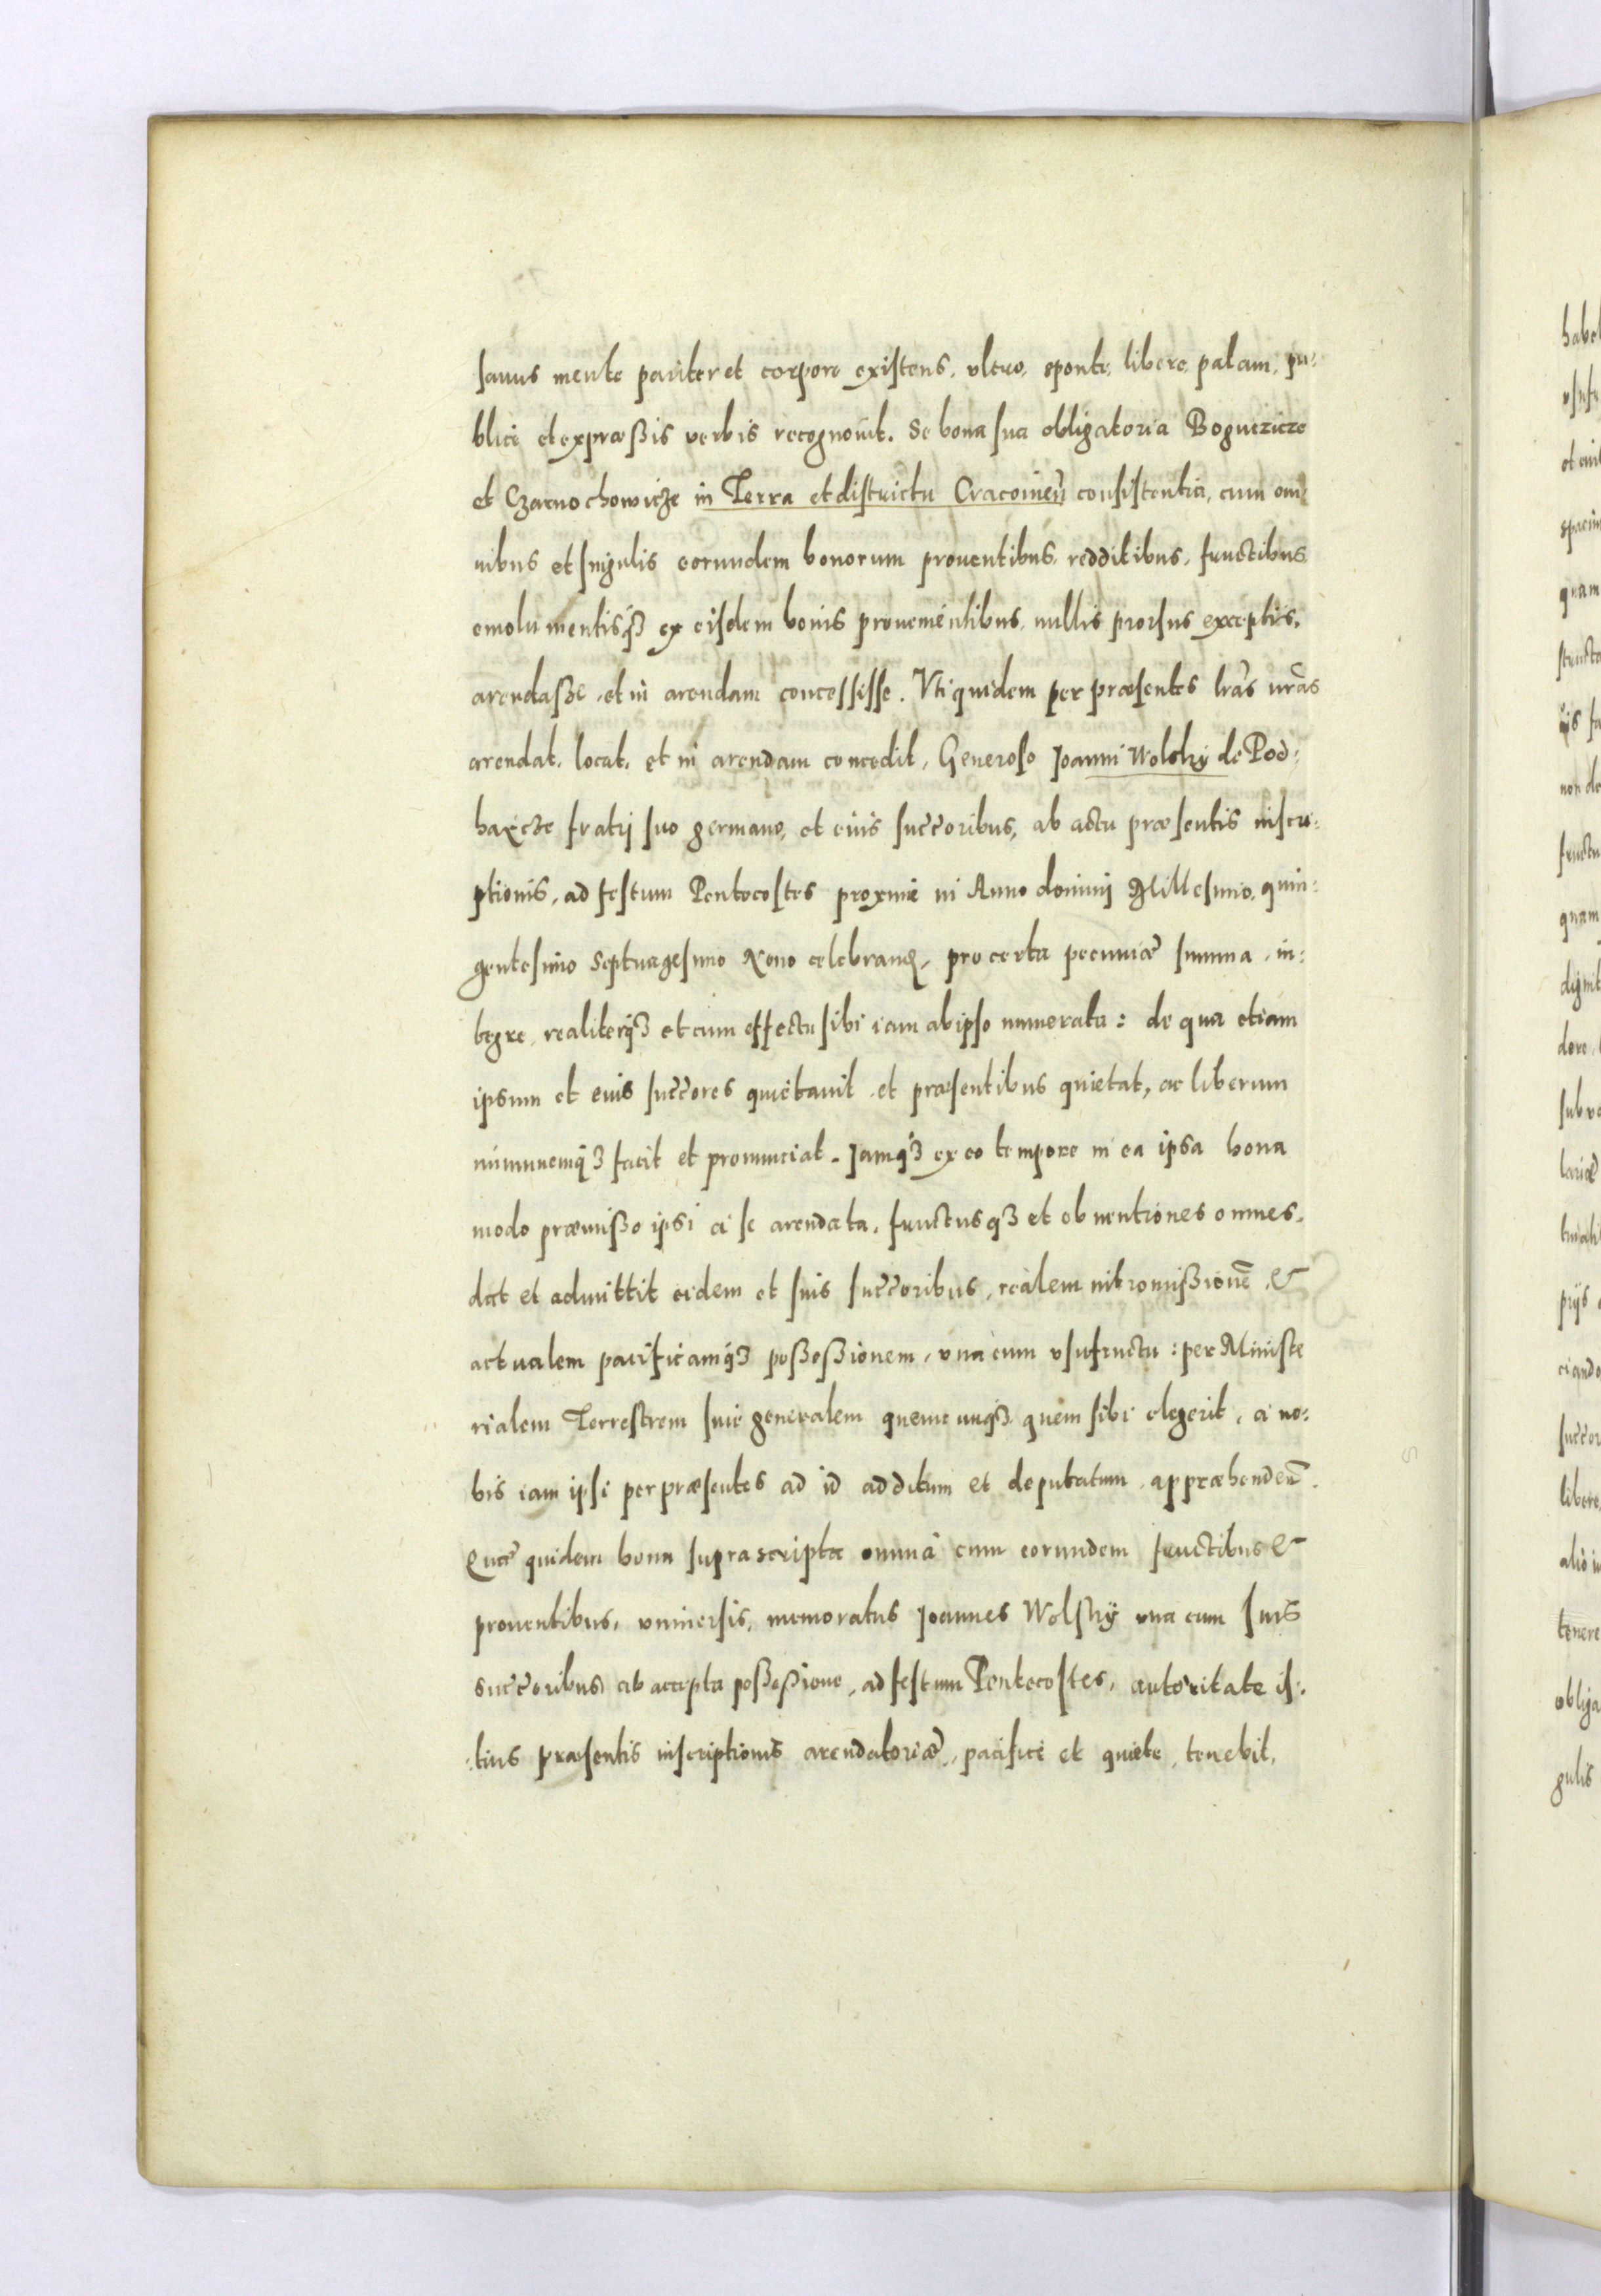 sanus mente pariter et corpore existens, ultro, sponte, libere, palam, pu:
blice et expraeßis verbis recognovit. Se bona sua obligatoria Boguczicze
et Czarnochowicze in Terra et districtu Cracovień consistentia, cum om:
nibus et singulis eorundem bonorum proventibus, redditibus, fructibus
emolumentisq3 ex eisdem bonis provenientibus, nullis prorsus exceptis,
arendasse, et in arendam concessisse. Uti quidem per praesentes lrãs nrãs
arendat, locat, et in arendam concedit, Generoso Joanni Wolsky de Pod:
haycze fratri suo germano, et eius succ̃oribus, ab actu praesentis inscri:
ptionis, ad festum Pentecostes proxime in Anno domini Millesimo, quin:
gentesimo Septuagesimo Nono celebranḍ, pro certa pecuniae summa, in:
tegre, realiterq3 et cum effectu sibi iam ab ipso numerata: de qua etiam
ipsum et eius succ̃ores quietavit, et praesentibus quietat, ac liberum
immunemq3 facit et pronunciat. Jamq3 ex eo tempore in ea ipsa bona
modo praemißo ipsi a se arendata, fructusq3 et obventiones omnes,
dat et admittit eidem et suis succ̃oribus, realem intromißionẽ, &
actualem pacificamq3 poßeßionem, una cum usufructu: per Ministe
rialem Terrestrem sive generalem quemcunq3 quem sibi elegerit, a no:
bis iam ipsi per praesentes ad id additum et deputatum, appraehendeñ.
Quae quidem bona suprascripta omnia cum eorundem fructibus &
proventibus, universis, memoratus Joannes Wolsky una cum suis
succ̃oribus ab accepta poßeßione, ad festum Pentecostes, autoritate is:
tius praesentis inscriptionis arendatoriae, pacifice et quiete, tenebit,